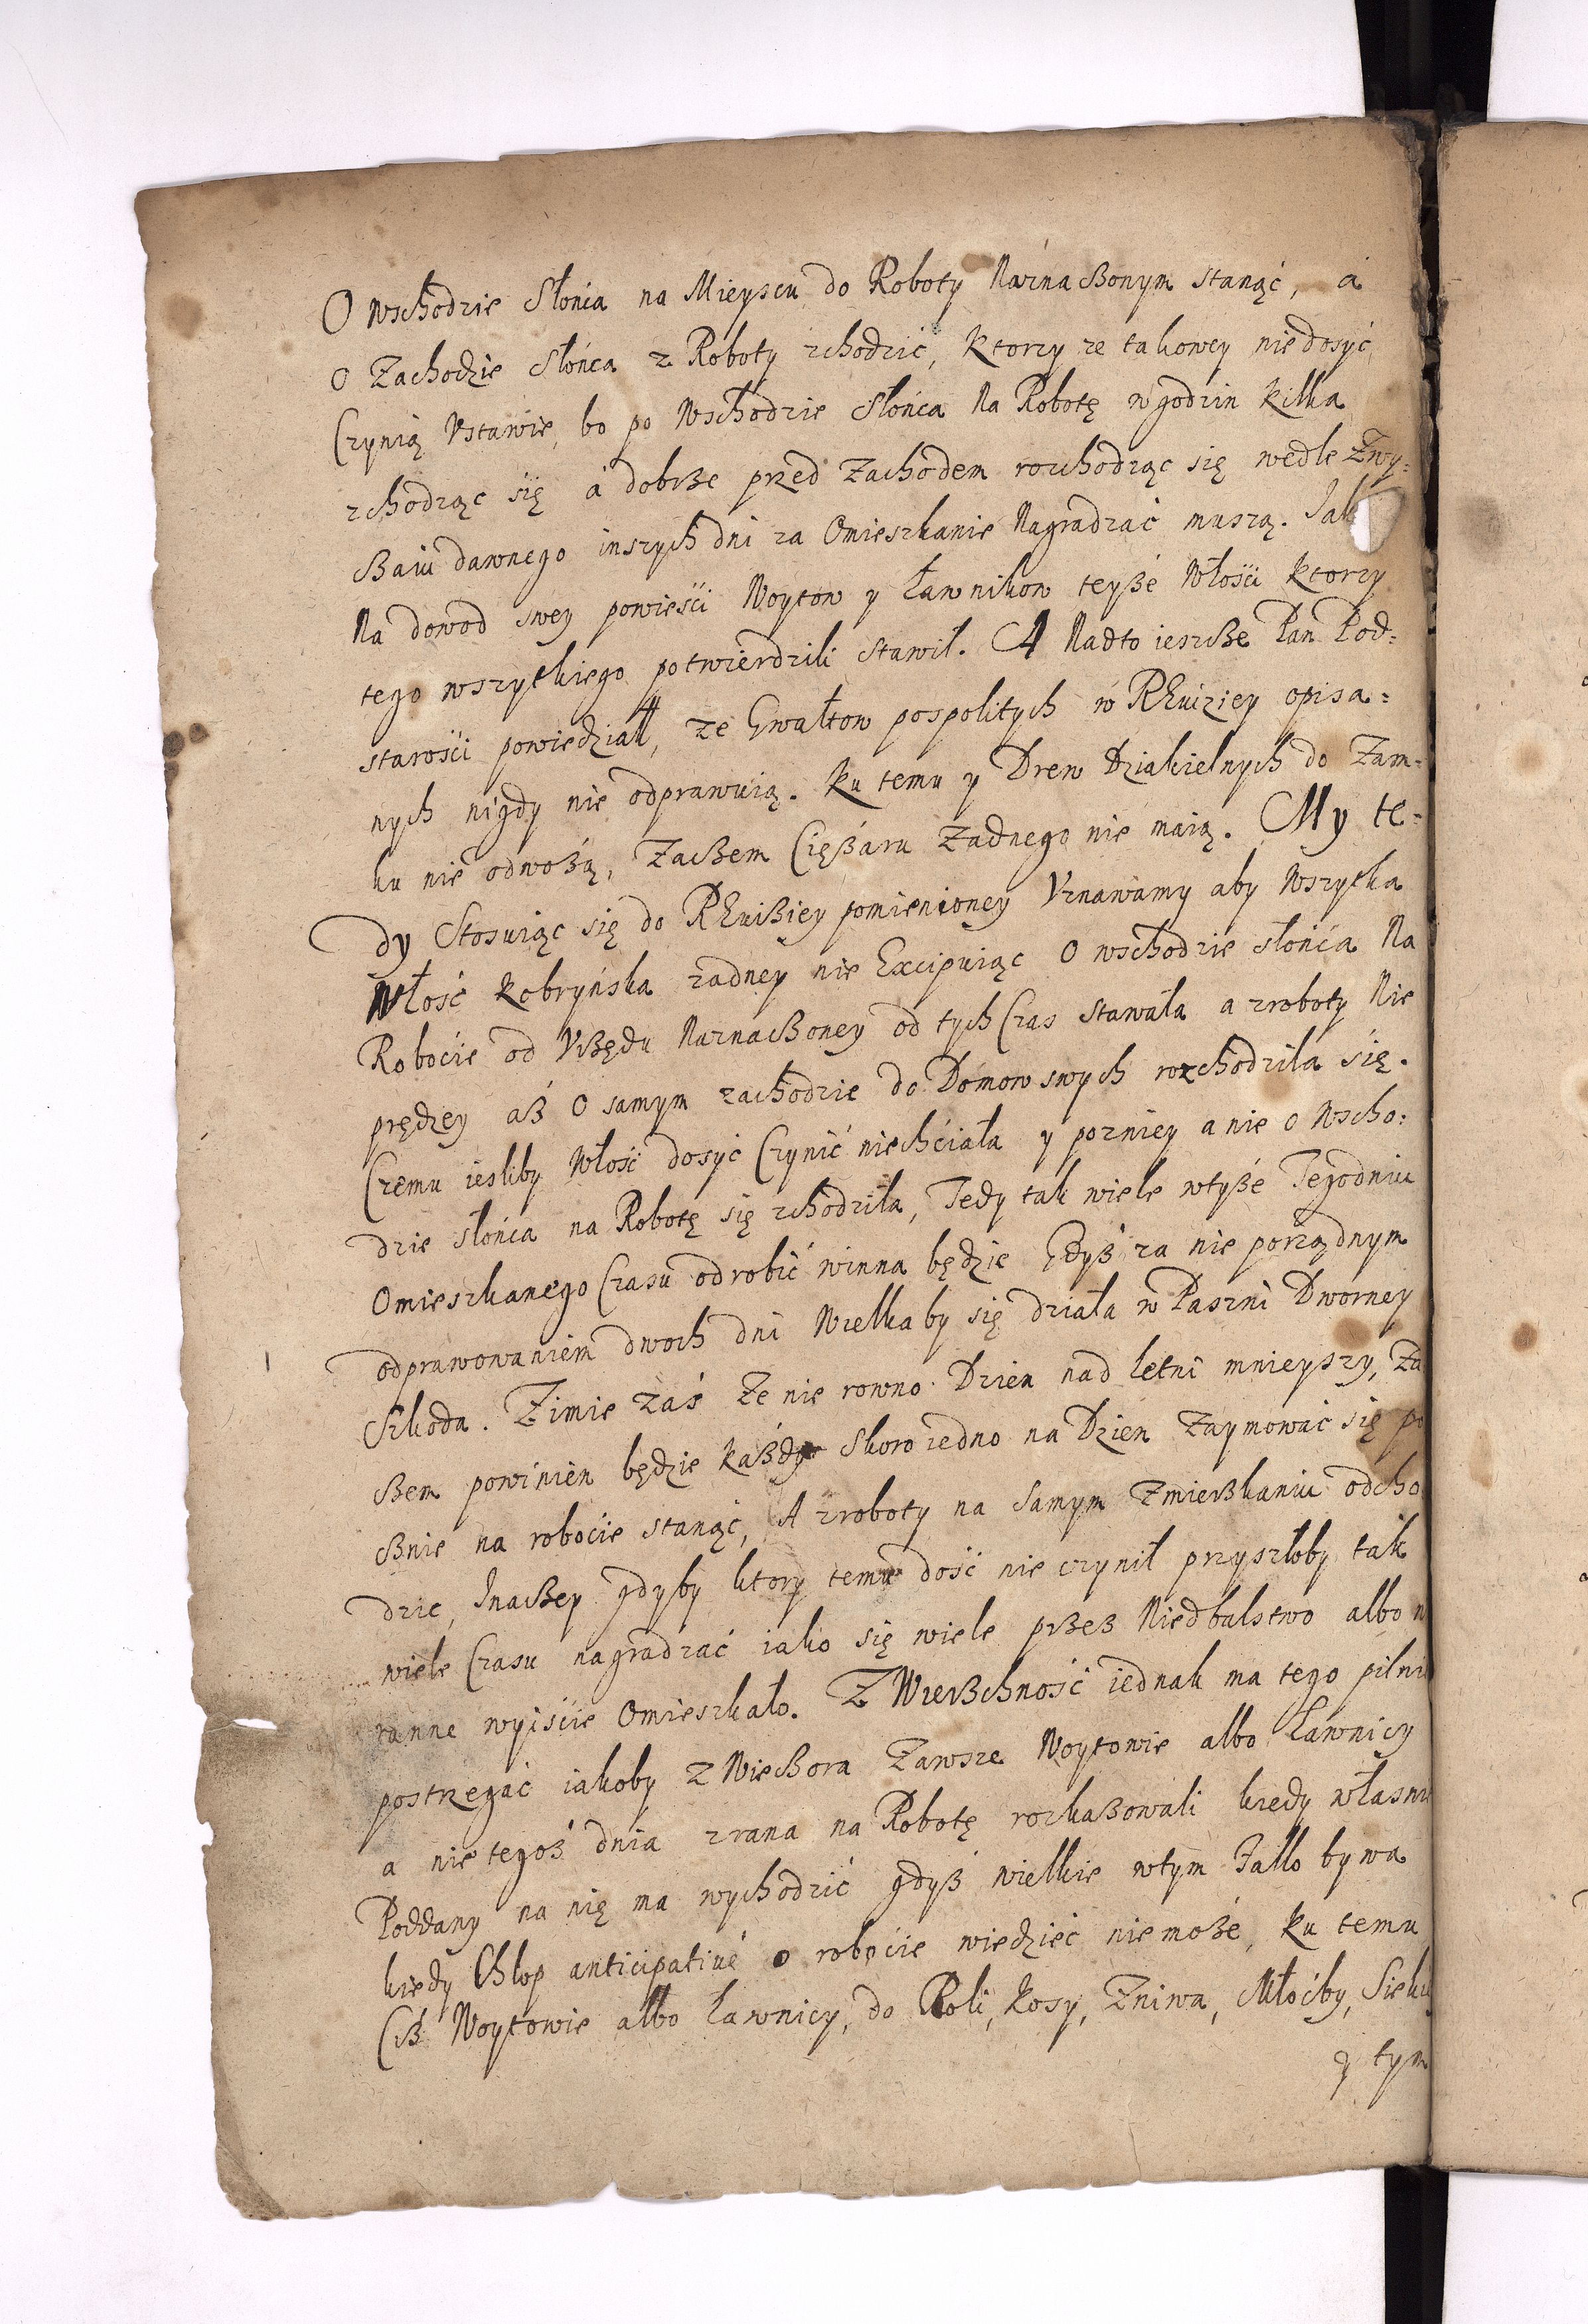 O wschodzie Słońca na Mieyscu do Roboty Naznaßonym stanąć, á
o Zachodzie Słońca z Roboty zchodzić, Ktorzy ze takowey nie dosyć
Czynią Vstawie, bo po Wschodzie Słońca Na Robotę w godzin kilka
zchodząc się á dobrße przed Zachodem rozchodząc się wedle Zwy:
ßaiu dawnego inszych dni za Omieszkanie Nagradzać muszą. Jak
Na dowod swey powieści Woytow y Ławnikow teyße Włości Ktorzy
tego wszytkiego potwierdzili stawil. A Nadto ieszße Pan Pod:
starości powiedział, ze Gwałtow pospolitych w REwiziey opisa:
nych nigdy nie odprawuią. Ku temu y Drew Dziakielnych do Zam:
ku nie odwoßą, Zaßem Ciężaru Zadnego nie maią. My te:
dy Stosuiąc się do REwißiey pomienioney Vznawamy aby Wszytka
Włość Kobryńska zadney nie Excipuiąc O wschodzie słońca Na
Robocie od Vrzędu Naznaßoney od tych Czas stawała a zroboty Nie
prędzey aß O samym zachodzie do Domow swych rozchodziła się.
Czemu iesliby Włość dosyć Czynić niechciała y pozniey a nie o Wscho:
dzie słońca na Robotę się zchodziła, Tedy tak wiele wtyße Tegodniu
Omieszkanego Czasu odrobić winna będzie Gdyß za nie porządnym
odprawowaniem dwoch dni Wielka by się działa w Paszni Dworney
Szkoda. Zimie zaś Ze nie rowno Dzien nad letni mnieyszy, Za
ßem powinien będzie każdy Skoro iedno na Dzien Zaymować się po
ßnie na robocie stanąć, A zroboty na Samym Zmierßkaniu odcho
dzic, Inaßey gdyby ktory temu dość nie czynił przyszłoby tak
wiele Czasu nagradzać iako się wiele przeß Niedbalstwo albo n
ranne wyiście Omieszkało. ZWierßchność iednak ma tego pilni
postrzegać iakoby z Wießora Zawsze Woytowie albo Ławnicy
a nie tegoß dnia zrana na Robotę rozkaßowali kiedy własni
Poddany na nię ma wychodzić gdyß wielkie wtym Fallo bywa
kiedy Chłop anticipatiué o robocie wiedzieć niemoße, Ku temu
Ciß Woytowie albo Ławnicy, do Roli, Kosy, Zniwa, Młoćby, Sieki
y tym